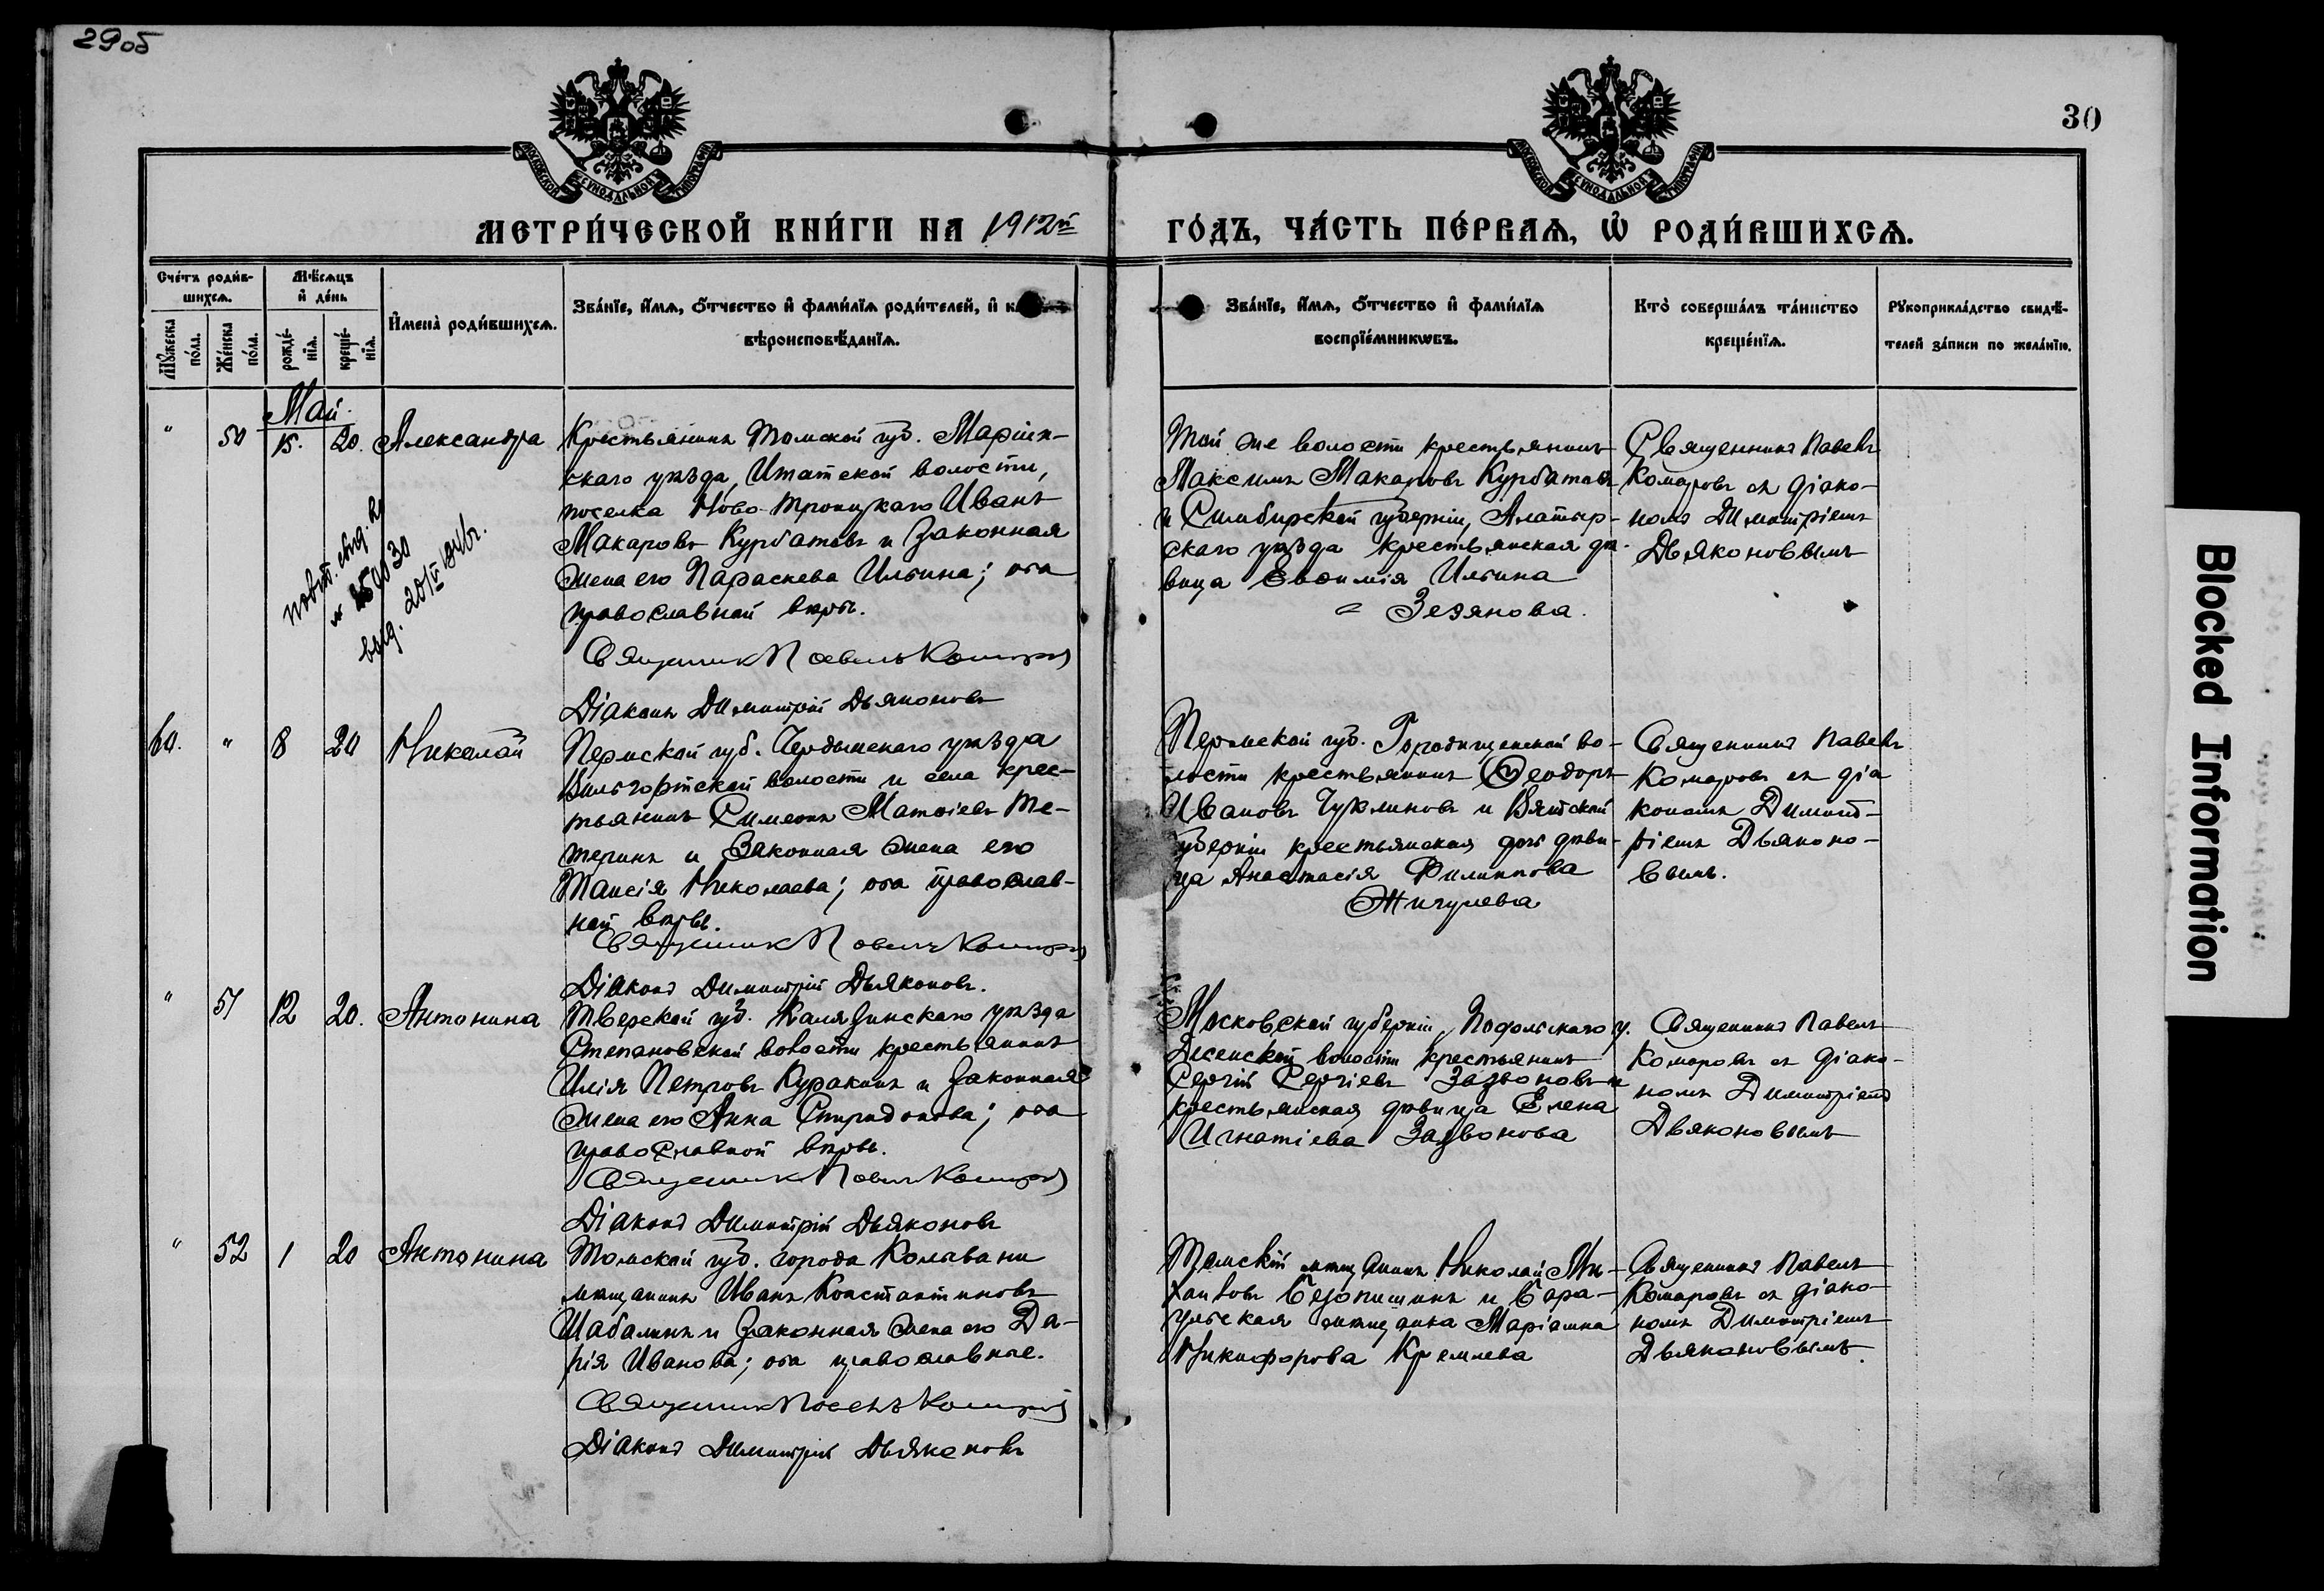 29об
30
МОСКОВСКОЙ СѴНОДАЛЬНОЙ ТИПОГРАФІИ
МОСКОВСКОЙ СѴНОДАЛЬНОЙ ТИПОГРАФІИ
МЕТРИ́ЧЕСКОЙ КНИ́ГИ НА 1912й
ГО́ДЪ, ЧА́СТЬ ПЕ́РВАѦ, Ѡ РОДИ́ВШИХСѦ.
Сче́тъ роди́в-
шихсѧ.
Мѣ́сѧцъ
и де́нь
Му́жеска
по́ла.
Же́нска
по́ла.
рожде́-
нїѧ.
креще́-
нїѧ.
И҆мена̀ роди́вшихсѧ.
Зва́нїе, и҆́мѧ, ѻ҆́тчество и҆ фами́лїѧ роди́телей, и҆
вѣроисповѣ́данїѧ.
Зва́нїе, и҆́мѧ, ѻ҆́тчество и҆ фами́лїѧ
воспрїе́мникѡвъ.
Кто̀ соверша́лъ та́инство
креще́нїѧ.
Рꙋкоприкла́дство свидѣ́-
телей за́писи по жела́нїю.
Май.
" 50 15. 20. Александра
Крестьянинъ Томской губ. Маріин-
скаго уѣзда, Итатской волости,
поселка Ново-Троицкаго Иванъ
Макаровъ Курбатовъ и законная
жена его Параскева Ильина; оба
православной вѣры.
Священникъ Павелъ Комаровъ
Діаконъ Димитрій Дьяконовъ
Той же волости крестьянинъ
Максимъ Макаровъ Курбатовъ
и Симбирской губерніи, Алатыр-
скаго уѣзда крестьянская дѣ-
вица Евѳимія Ильина
Зезянова.
Священникъ Павелъ
Комаровъ съ діако-
номъ Димитріемъ
Дьяконовымъ
повт. свид.
выд.
60. " 8 20 Николай
Пермской губ. Чердынскаго уѣзда
Вильгортской волости и села крес-
тьянинъ Симеонъ Матѳіевъ Те-
теринъ и законная жена его
Таисія Николаева; оба православ-
ной вѣры.
Священникъ Павелъ Комаровъ
Діаконъ Димитрій Дьяконовъ.
Пермской губ. Городищенской во-
лости крестьянинъ Ѳеодоръ
Ивановъ Чуклиновъ и Вятской
губерніи крестьянская дочь дѣви-
ца Анастасія Филиппова
Жигулева
Священникъ Павелъ
Комаровъ съ діа
кономъ Димит-
ріемъ Дьяконо-
вымъ.
" 51 12 20. Антонина
Тверской губ. Калязинскаго уѣзда
Степановской волости крестьянинъ
Илія Петровъ Куракинъ и законная
жена его Анна Спиридонова; оба
православной вѣры.
Священникъ Павелъ Комаровъ
Діаконъ Димитрій Дьяконовъ
Московской губерніи, Подольскаго у.
Десенской волости крестьянинъ
Сергій Сергіевъ Зазвоновъ и
крестьянская дѣвица Елена
Игнатіева Зазвонова
Священникъ Павелъ
Комаровъ съ діако-
номъ Димитріемъ
Дьяконовымъ
" 52 1 20 Антонина
Томской губ. города Колывани
мѣщанинъ Иванъ Константиновъ
Шабалинъ и законная жена его Да-
рія Иванова; оба православные.
Священникъ Павелъ Комаровъ
Діаконъ Димитрій Дьяконовъ
Томскій мѣщанинъ Николай Ми-
хайловъ и Сара-
пульская мѣщанка Маріамна
Никифорова Кремлева
Священникъ Павелъ
Комаровъ съ діако-
номъ Димитріемъ
Дьяконовымъ.
Blocked Information